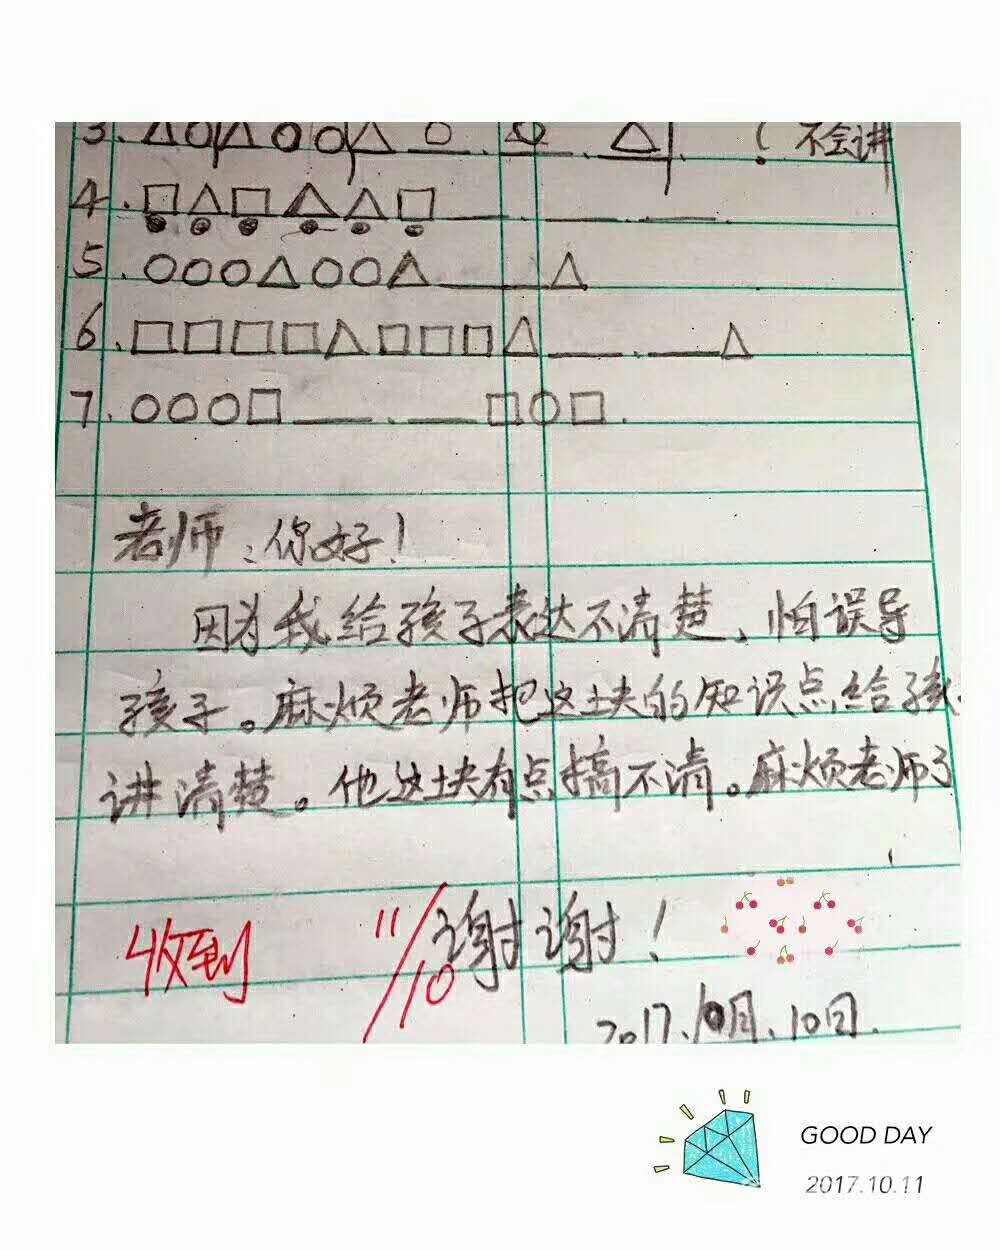 3. △○△○○△ ○ △ △ ? 不会讲
4. □△□△△□
5. ○○○△○○△ △
6. □□□□△□□□△ △
7. ○○○□ □○□.
老师:你好!
因为我给孩子表达不清楚、怕误导
孩子。麻烦老师把这块的知识点给孩
讲清楚。他这块有点搞不清。麻烦老师了
收到 11/10 谢谢!
2017.10月.10日.
GOOD DAY
2017.10.11